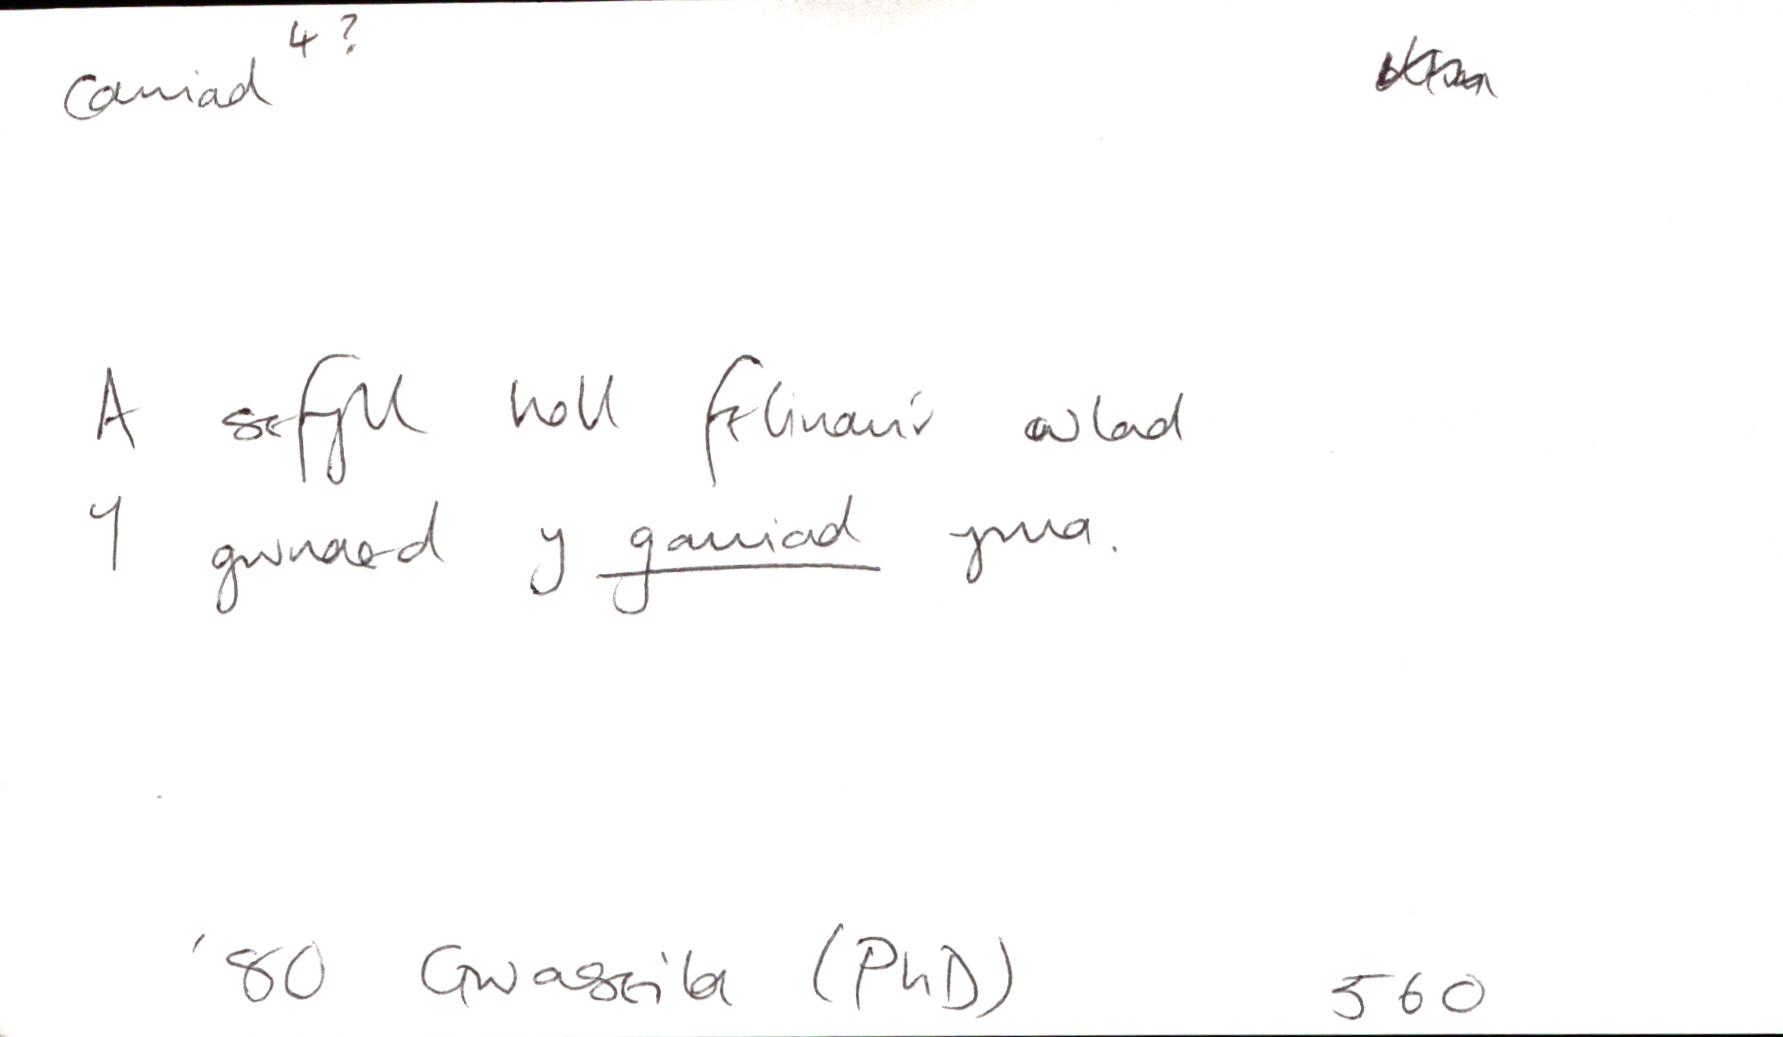 caniad 4?
A sefyll holl felinau'r wlad
Y gwnaed y ganiad yma.
'80 Gwaseila (PhD) 560